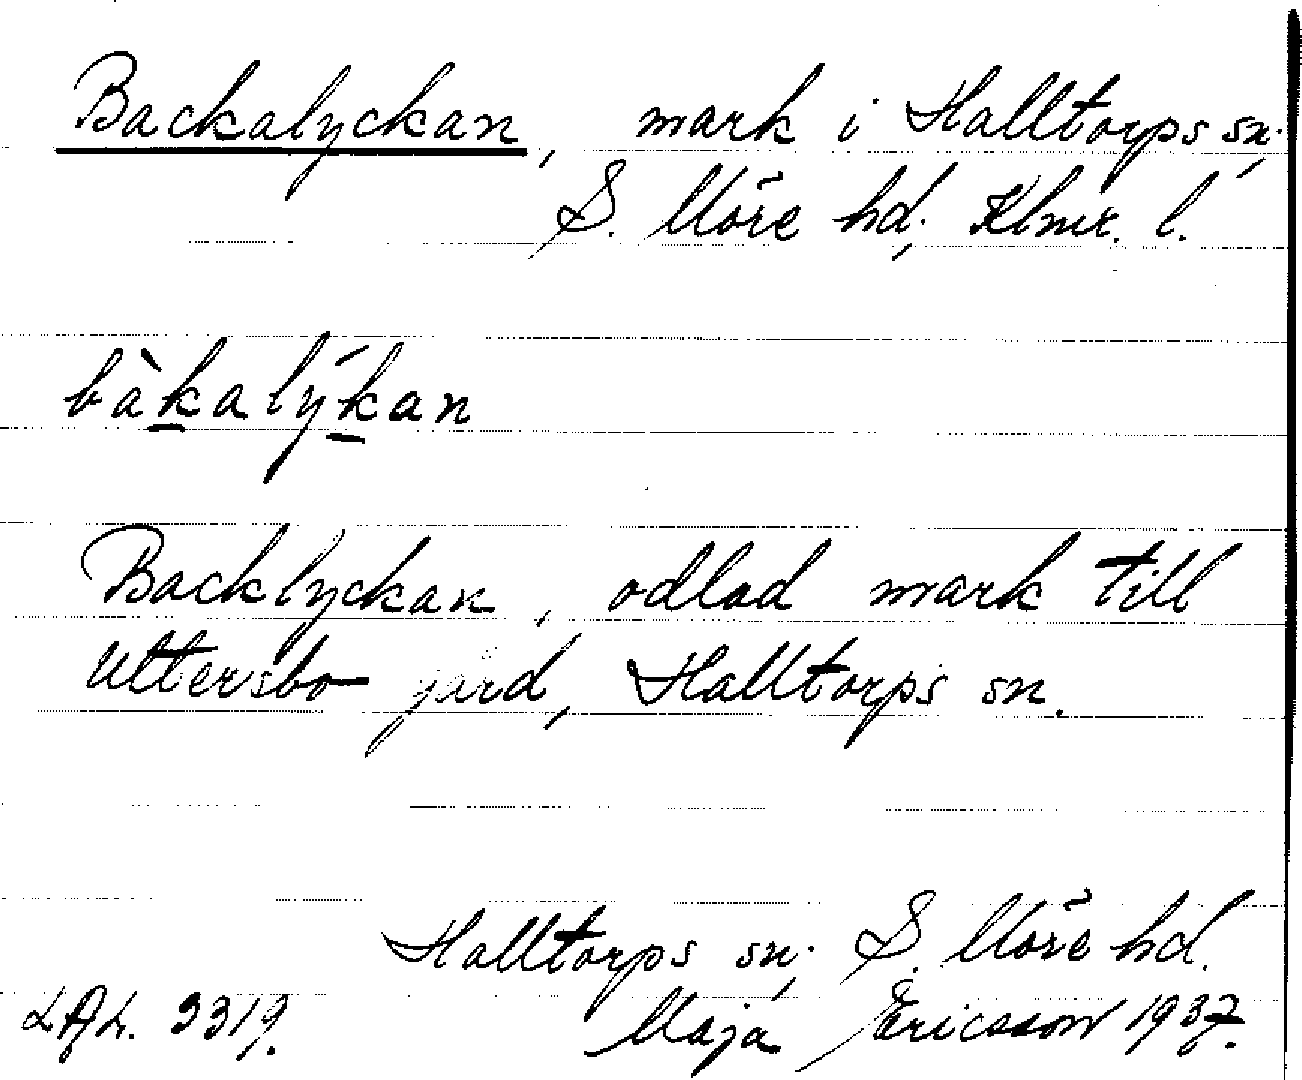 Backalyckan, mark i Halltorps sn.,
S. Möre hd., Klmr. l.
bàkalýkan
Backlyckan, odlad mark till
Uttersbo gård, Halltorps sn.
Halltorps sn., S. Möre hd.
LAL. 3319. Maja Ericsson 1937.